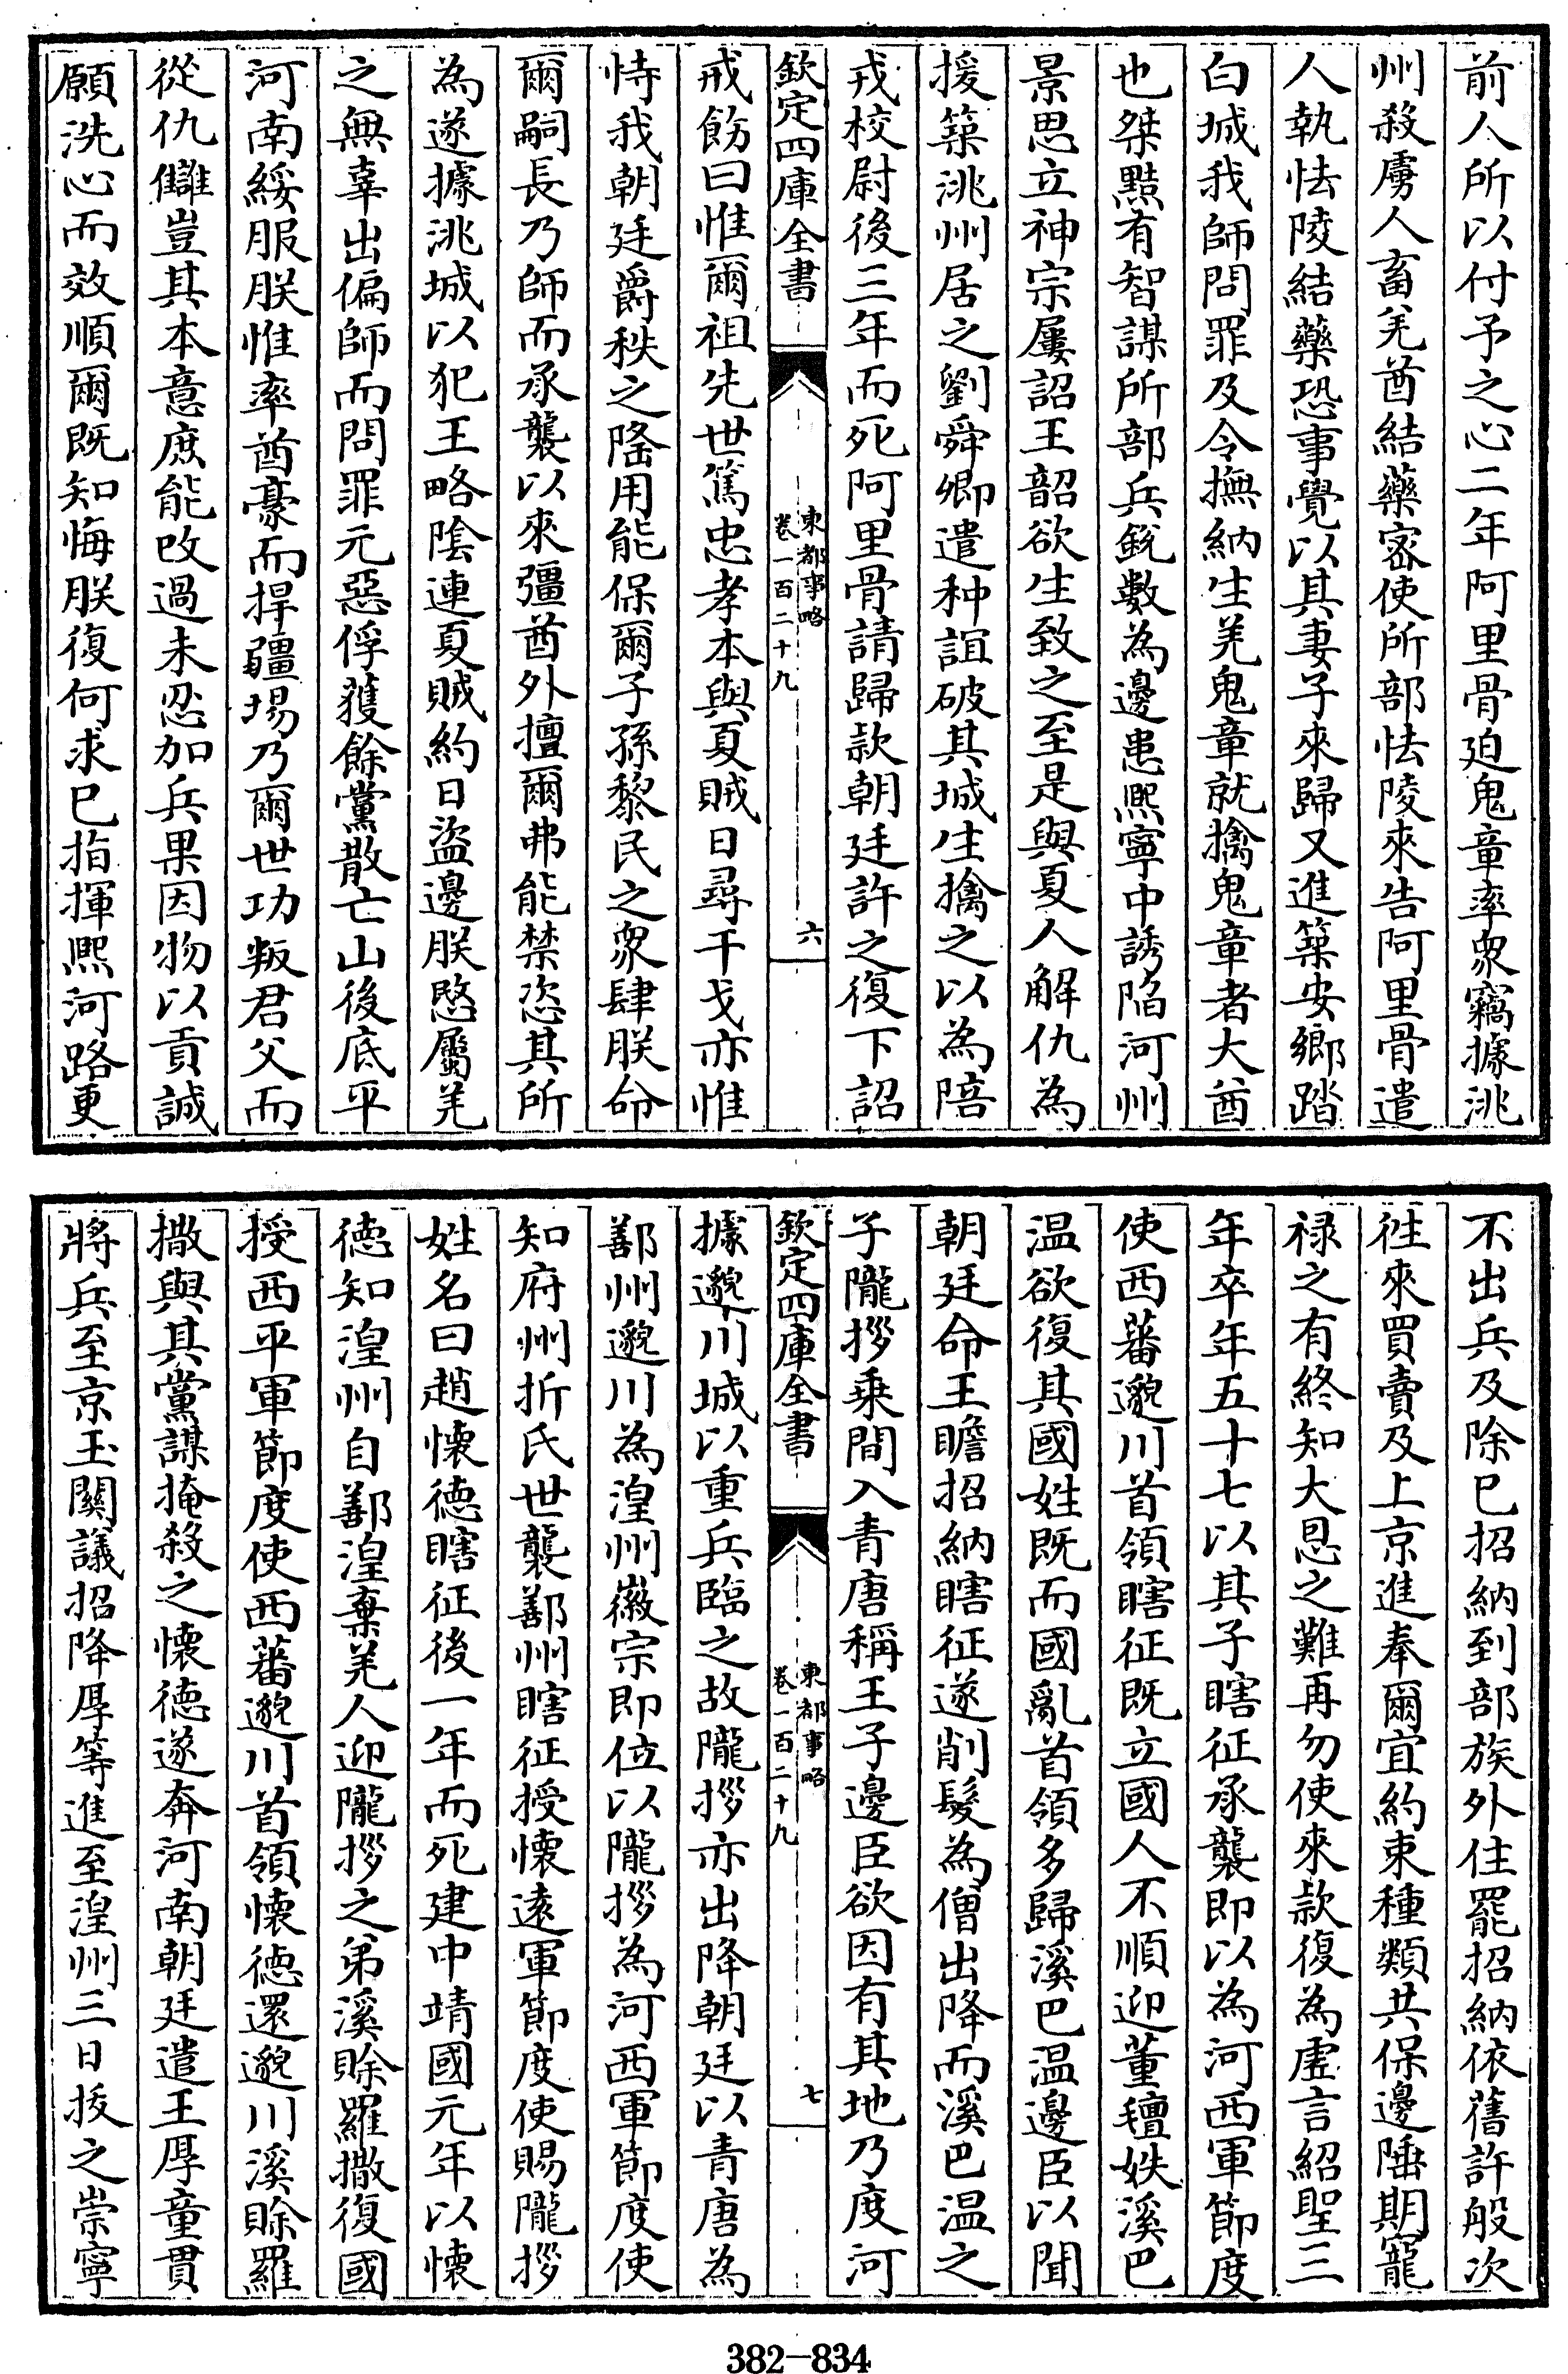 前人所以付予之心二年阿里骨迫鬼章率衆竊據洮
州殺虜人畜羌酋結藥密使所部怯陵來告阿里骨遣
人執怯陵結藥恐事覺以其妻子來歸又進築安鄉踏
白城我師問罪及令撫納生羌鬼章就擒鬼章者大酋
也桀黠有智謀所部兵銳數為邊患熙寧中誘陷河州
景思立神宗屢詔王韶欲生致之至是與夏人解仇為
援築洮州居之劉舜卿遣种誼破其城生擒之以為陪
戎校尉後三年而死阿里骨請歸款朝廷許之復下詔
欽定四庫全書
東都事略
卷一百二十九
六
戒飭曰惟爾祖先世篤忠孝本與夏賊日尋干戈亦惟
恃我朝廷爵秩之隆用能保爾子孫黎民之衆肆朕命
爾嗣長乃師而承襲以來彊酋外擅爾弗能禁恣其所
為遂據洮城以犯王略陰連夏賊約日盜邊朕愍屬羌
之無辜出偏師而問罪元惡俘獲餘黨散亡山後底平
河南綏服朕惟率酋豪而捍疆埸乃爾世功叛君父而
從仇讎豈其本意庶能改過未忍加兵果因物以貢誠
願洗心而效順爾既知悔朕復何求巳指揮熙河路更
不出兵及除巳招納到部族外住罷招納依舊許般次
徃來買賣及上京進奉爾宜約束種類共保邊陲期寵
禄之有終知大恩之難再勿使來款復為虛言紹聖三
年卒年五十七以其子瞎征承襲即以為河西軍節度
使西蕃邈川首領瞎征既立國人不順迎董氊姪溪巴
温欲復其國姓既而國亂首領多歸溪巴温邊臣以聞
朝廷命王瞻招納瞎征遂削髮為僧出降而溪巴温之
子隴拶乘間入青唐稱王子邊臣欲因有其地乃度河
欽定四庫全書
東都事略
卷一百二十九
七
據邈川城以重兵臨之故隴拶亦出降朝廷以青唐為
鄯州邈川為湟州徽宗即位以隴拶為河西軍節度使
知府州折氏世襲鄯州瞎征授懷遠軍節度使賜隴拶
姓名曰趙懷德瞎征後一年而死建中靖國元年以懷
德知湟州自鄯湟棄羌人迎隴拶之弟溪賒羅撒復國
授西平軍節度使西蕃邈川首領懷德還邈川溪賒羅
撒與其黨謀掩殺之懷德遂奔河南朝廷遣王厚童貫
將兵至京玉關議招降厚等進至湟州三日拔之崇寧
382-834